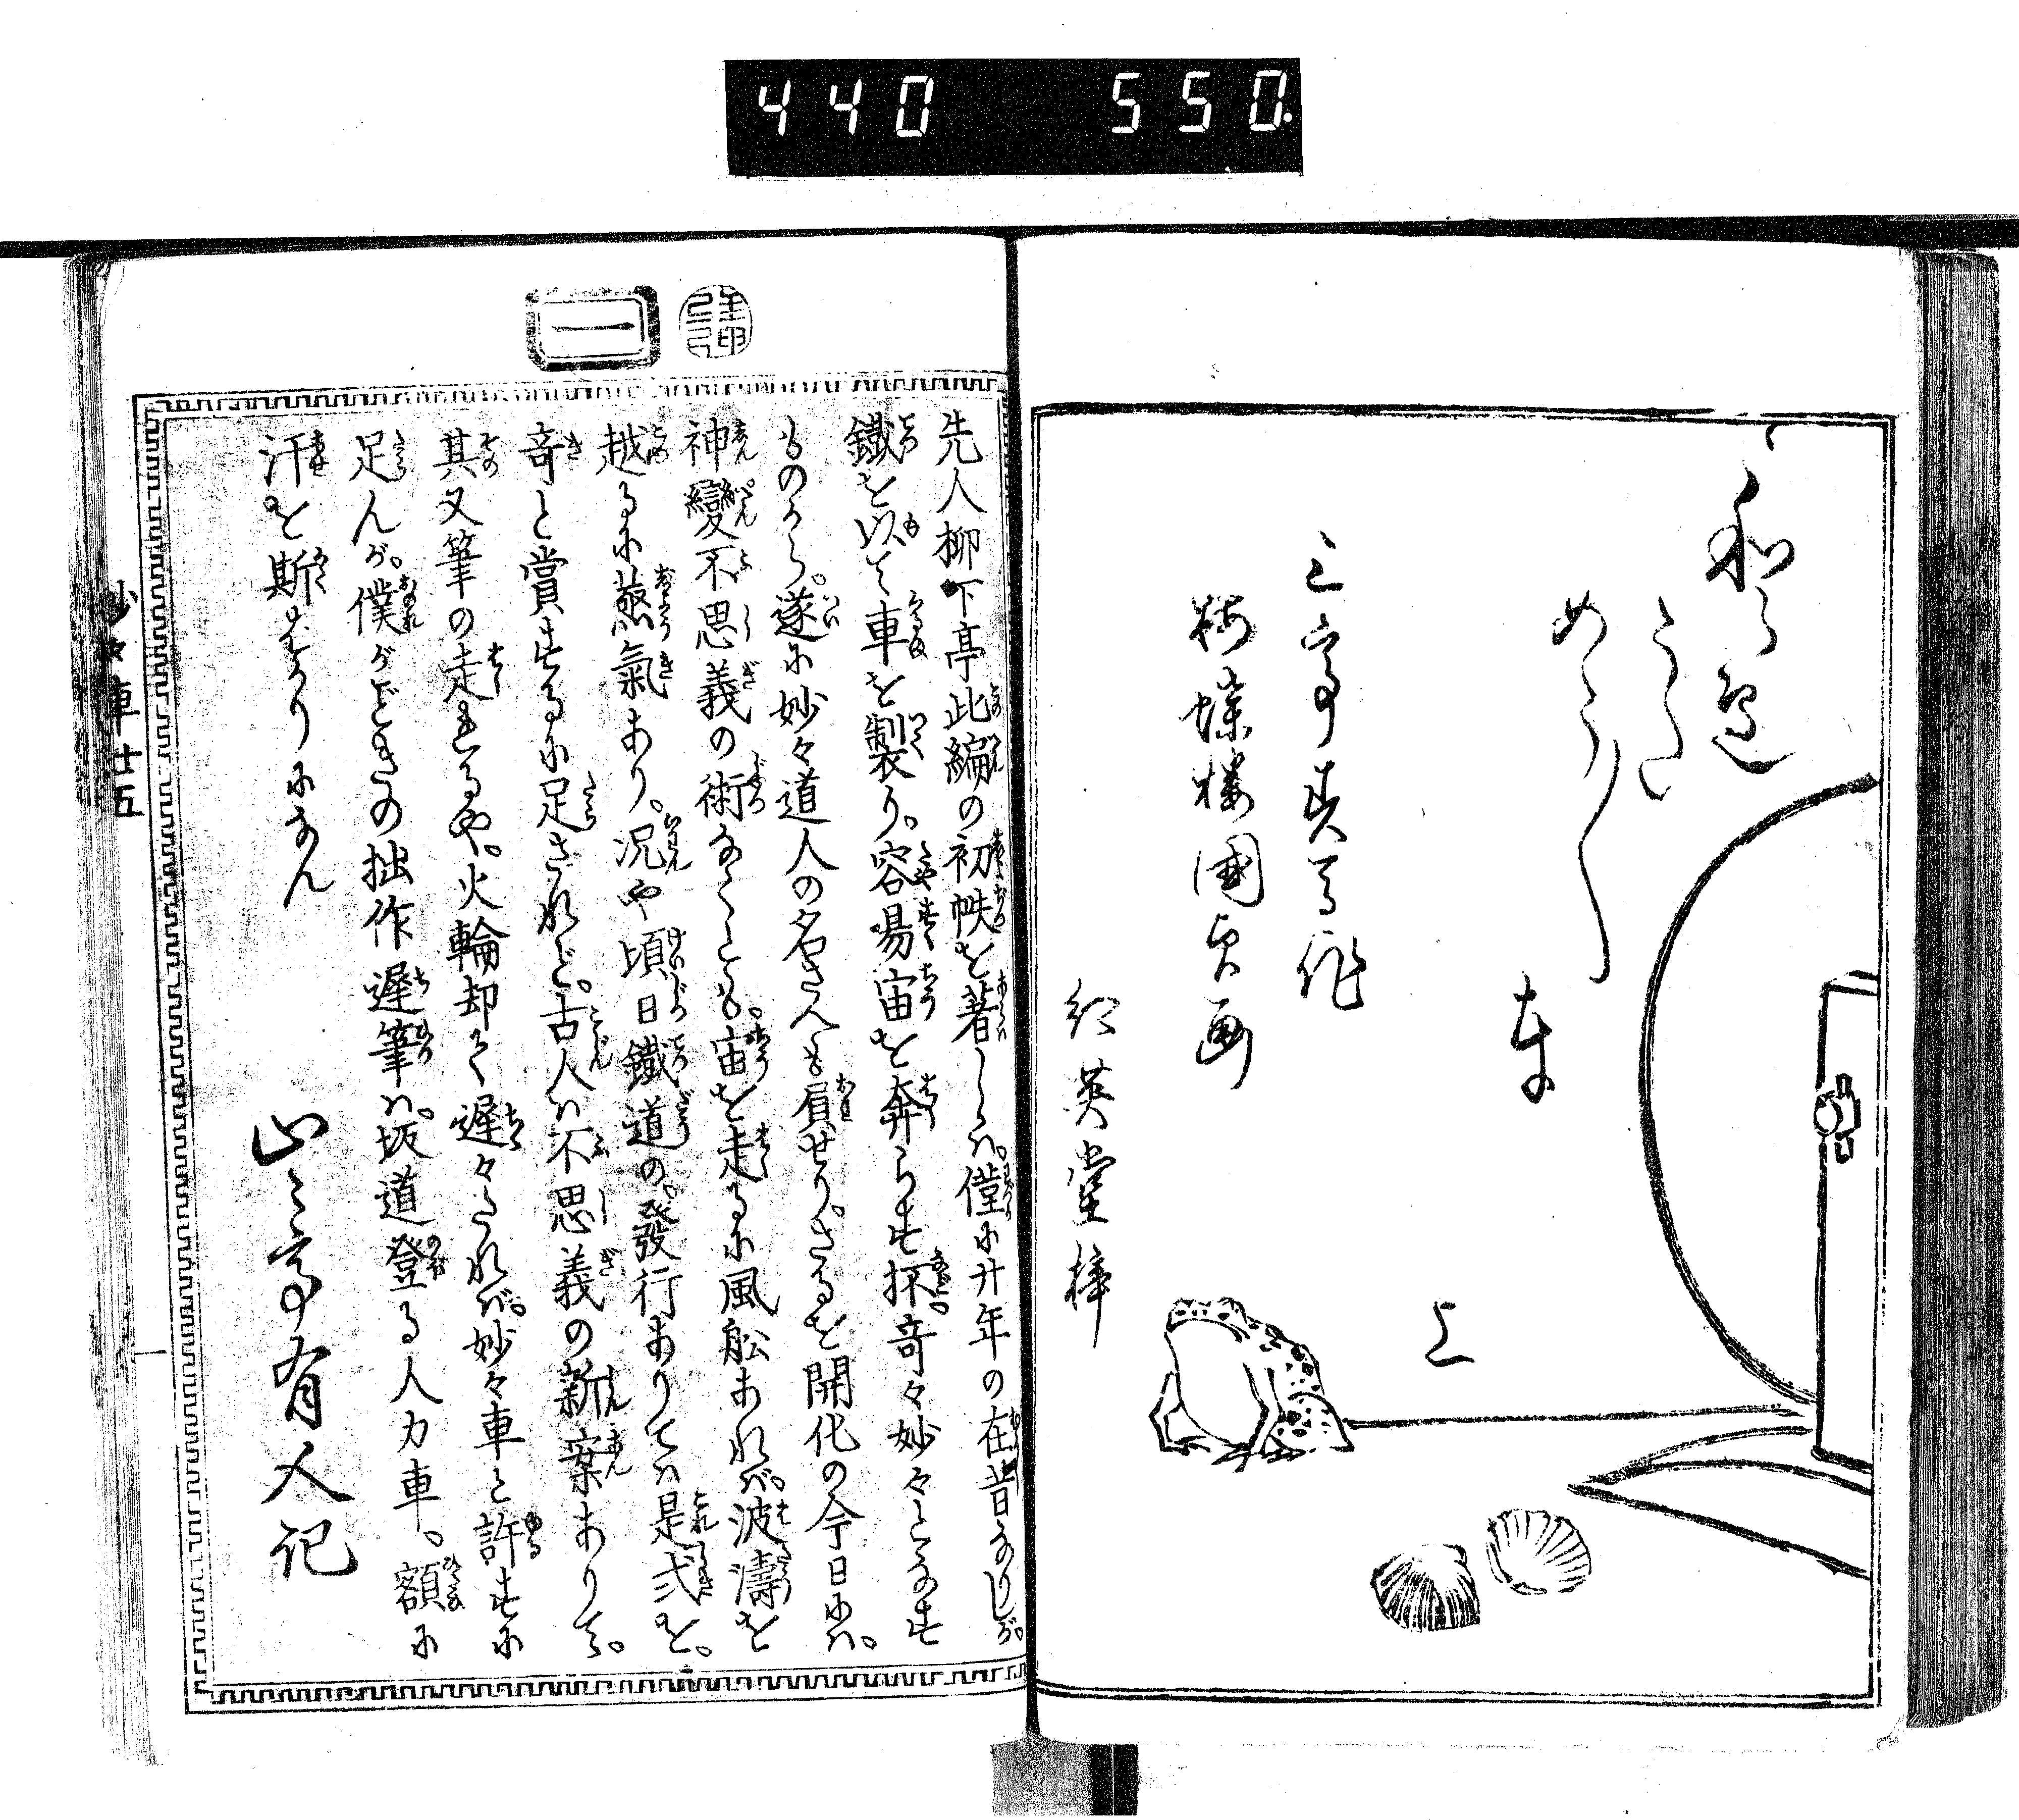 440 550.
車
上
三亭春馬作
梅蝶楼國貞画
紅英堂梓
一
先人柳下亭此編の初帙を著しゝハ。僅に廿年の在昔なりしが。
鐵を以て車を製り。容易宙を奔らす抔奇々妙々となす
ものから。遂に妙々道人の名さへも屓せり。さるを開化の今日にハ。
神變不思義の術なくとも。宙を走るに風舩あれバ。波濤を
越るに蒸氣あり。况や頃日鐵道の。發行ありてハ是式を。
奇と賞するに足ざれど。古人ハ不思義の新案ありて。
其又筆の走れるや。火輪却て遅々たれバ。妙々車と許すに
足んが。僕がごときの拙作遅筆ハ。坂道登る人力車。額に
汗を斯ばかりになん
山々亭有人記
妙々車 廿五